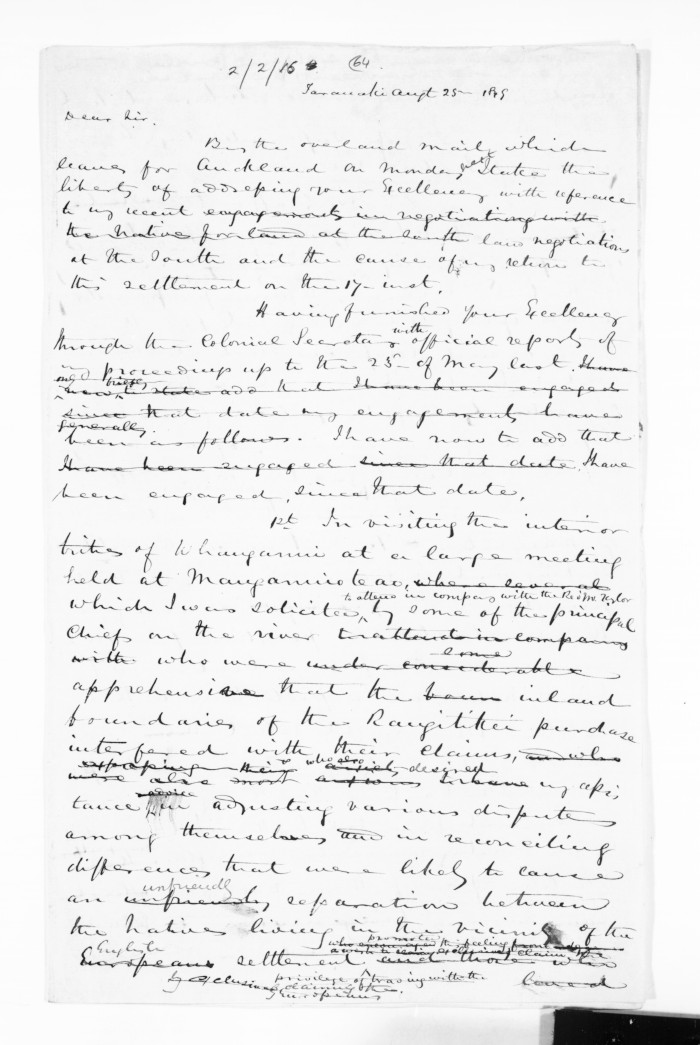 2/2/16 64
Taranaki Augt 25th 1849
Dear Sir,
By the overland mail which
leaves for Auckland on Monday next I take the
liberty of addressing your Excellency with reference
to my recent engagements in negotiating with
the Native for land at the South land negotiations
at the South and the cause of my return to
this settlement on the 17th inst.
Having furnished your Excellency
through the Colonial Secretary with official reports of
my proceedings up to the 25th of May last. I have
only briefly
now to state add that I have been engaged
since that date my engagements have
generally
been as follows. I have now to add that
I have been engaged since that date. I have
been engaged, since that date,
1st In visiting the interior
tribes of Whanganui at a large meeting
held at Manganuioteao, where several
to attend in company with the Revd Mr Taylor
which I was solicited by some of the principal
Chiefs on the river to attend in company
some
with who were under considerable
apprehensive that the boun inland
boundaries of the Rangitikei purchase
interfered with their claims, and who
expressing their who also desired
were also most anxious to have my assis
tance in adjusting various disputes
among themselves and in reconciling
differences that were likely to cause
unfriendly
an unfriendly separation between
the Natives living in the vicinity of the
promote the feeling
English
European settlement and those who
by exclusive privilege of trading with the
claiming the
Europeans